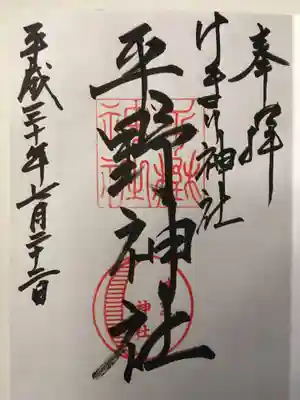 奉拝
けまり神社
平野神社
平成三十年七月二十二日
神社